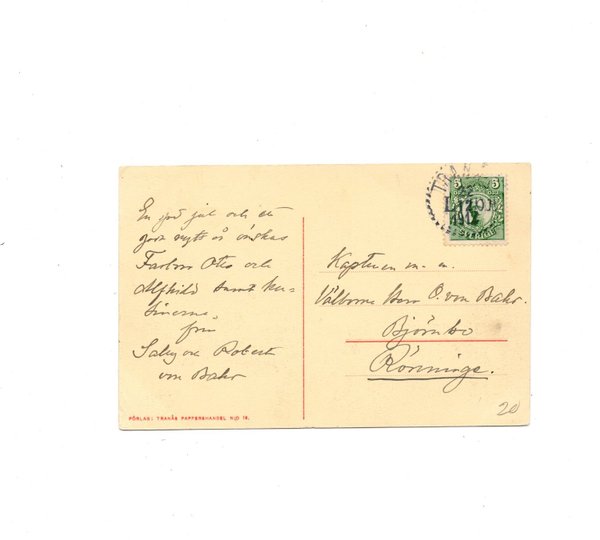 En god jul och ett
godt nytt år önskas
Farbror Otto och
Alfhild samt Ku-
sinerna
från
Sally och Robert
von Bahr
FÖRLAG: TRANÅS PAPPERSHANDEL N:O 18.
TRANÅS
5 5
22
1912
SVERIGE
Kaptenen m. m.
Välborne Herr O. von Bahr.
Björnbo
Rönninge.
20